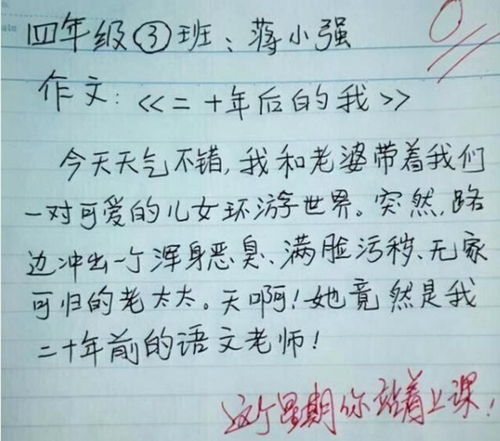 四年级③班:蒋小强
作文:<<二十年后的我>>
今天天气不错,我和老婆带着我们
一对可爱的儿女环游世界。突然,路
边冲出一个浑身恶臭、满脸污秽、无家
可归的老太太。天啊!她竟然是我
二十年前的语文老师!
这个星期你站着上课!